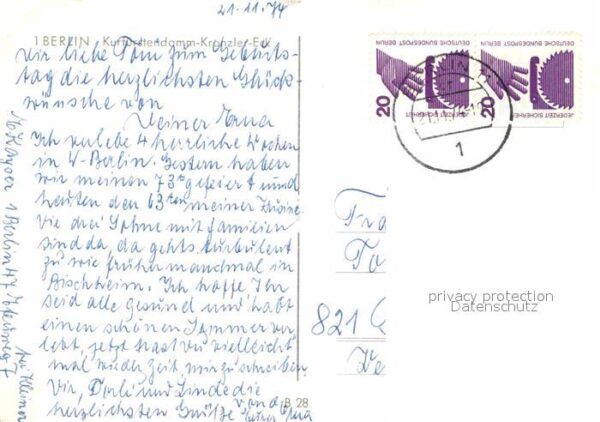 21.11.74
1 BERLIN Kurfürstendamm-Kranzler-Eck
Dir liebe Toni zum Geburts-
tag die herzlichsten Glück-
wünsche von
Deiner Erna
Ich verlebe 4 herrliche Wochen
in W-Berlin. Gestern haben
wir meinen 73ten gefeiert und
heute den 63ten meiner Kusine
Die drei Söhne mit Familien
sind da, da gehts turbulent
zu wie früher manchmal in
Bischheim. Ich hoffe Ihr
seid alle gesund und habt
einen schönen Sommer ver
lebt, jetzt hast du vielleicht
mal wieder Zeit mir zu schreiben
Dir, und die
herzlichsten Grüße von
Erna
B 28
1 Berlin 47
bei
DEUTSCHE BUNDESPOST BERLIN
DEUTSCHE BUNDESPOST BERLIN
20
20
JEDERZEIT SICHERHEIT
JEDERZEIT SICHERHEIT
1
821
privacy protection
Datenschutz